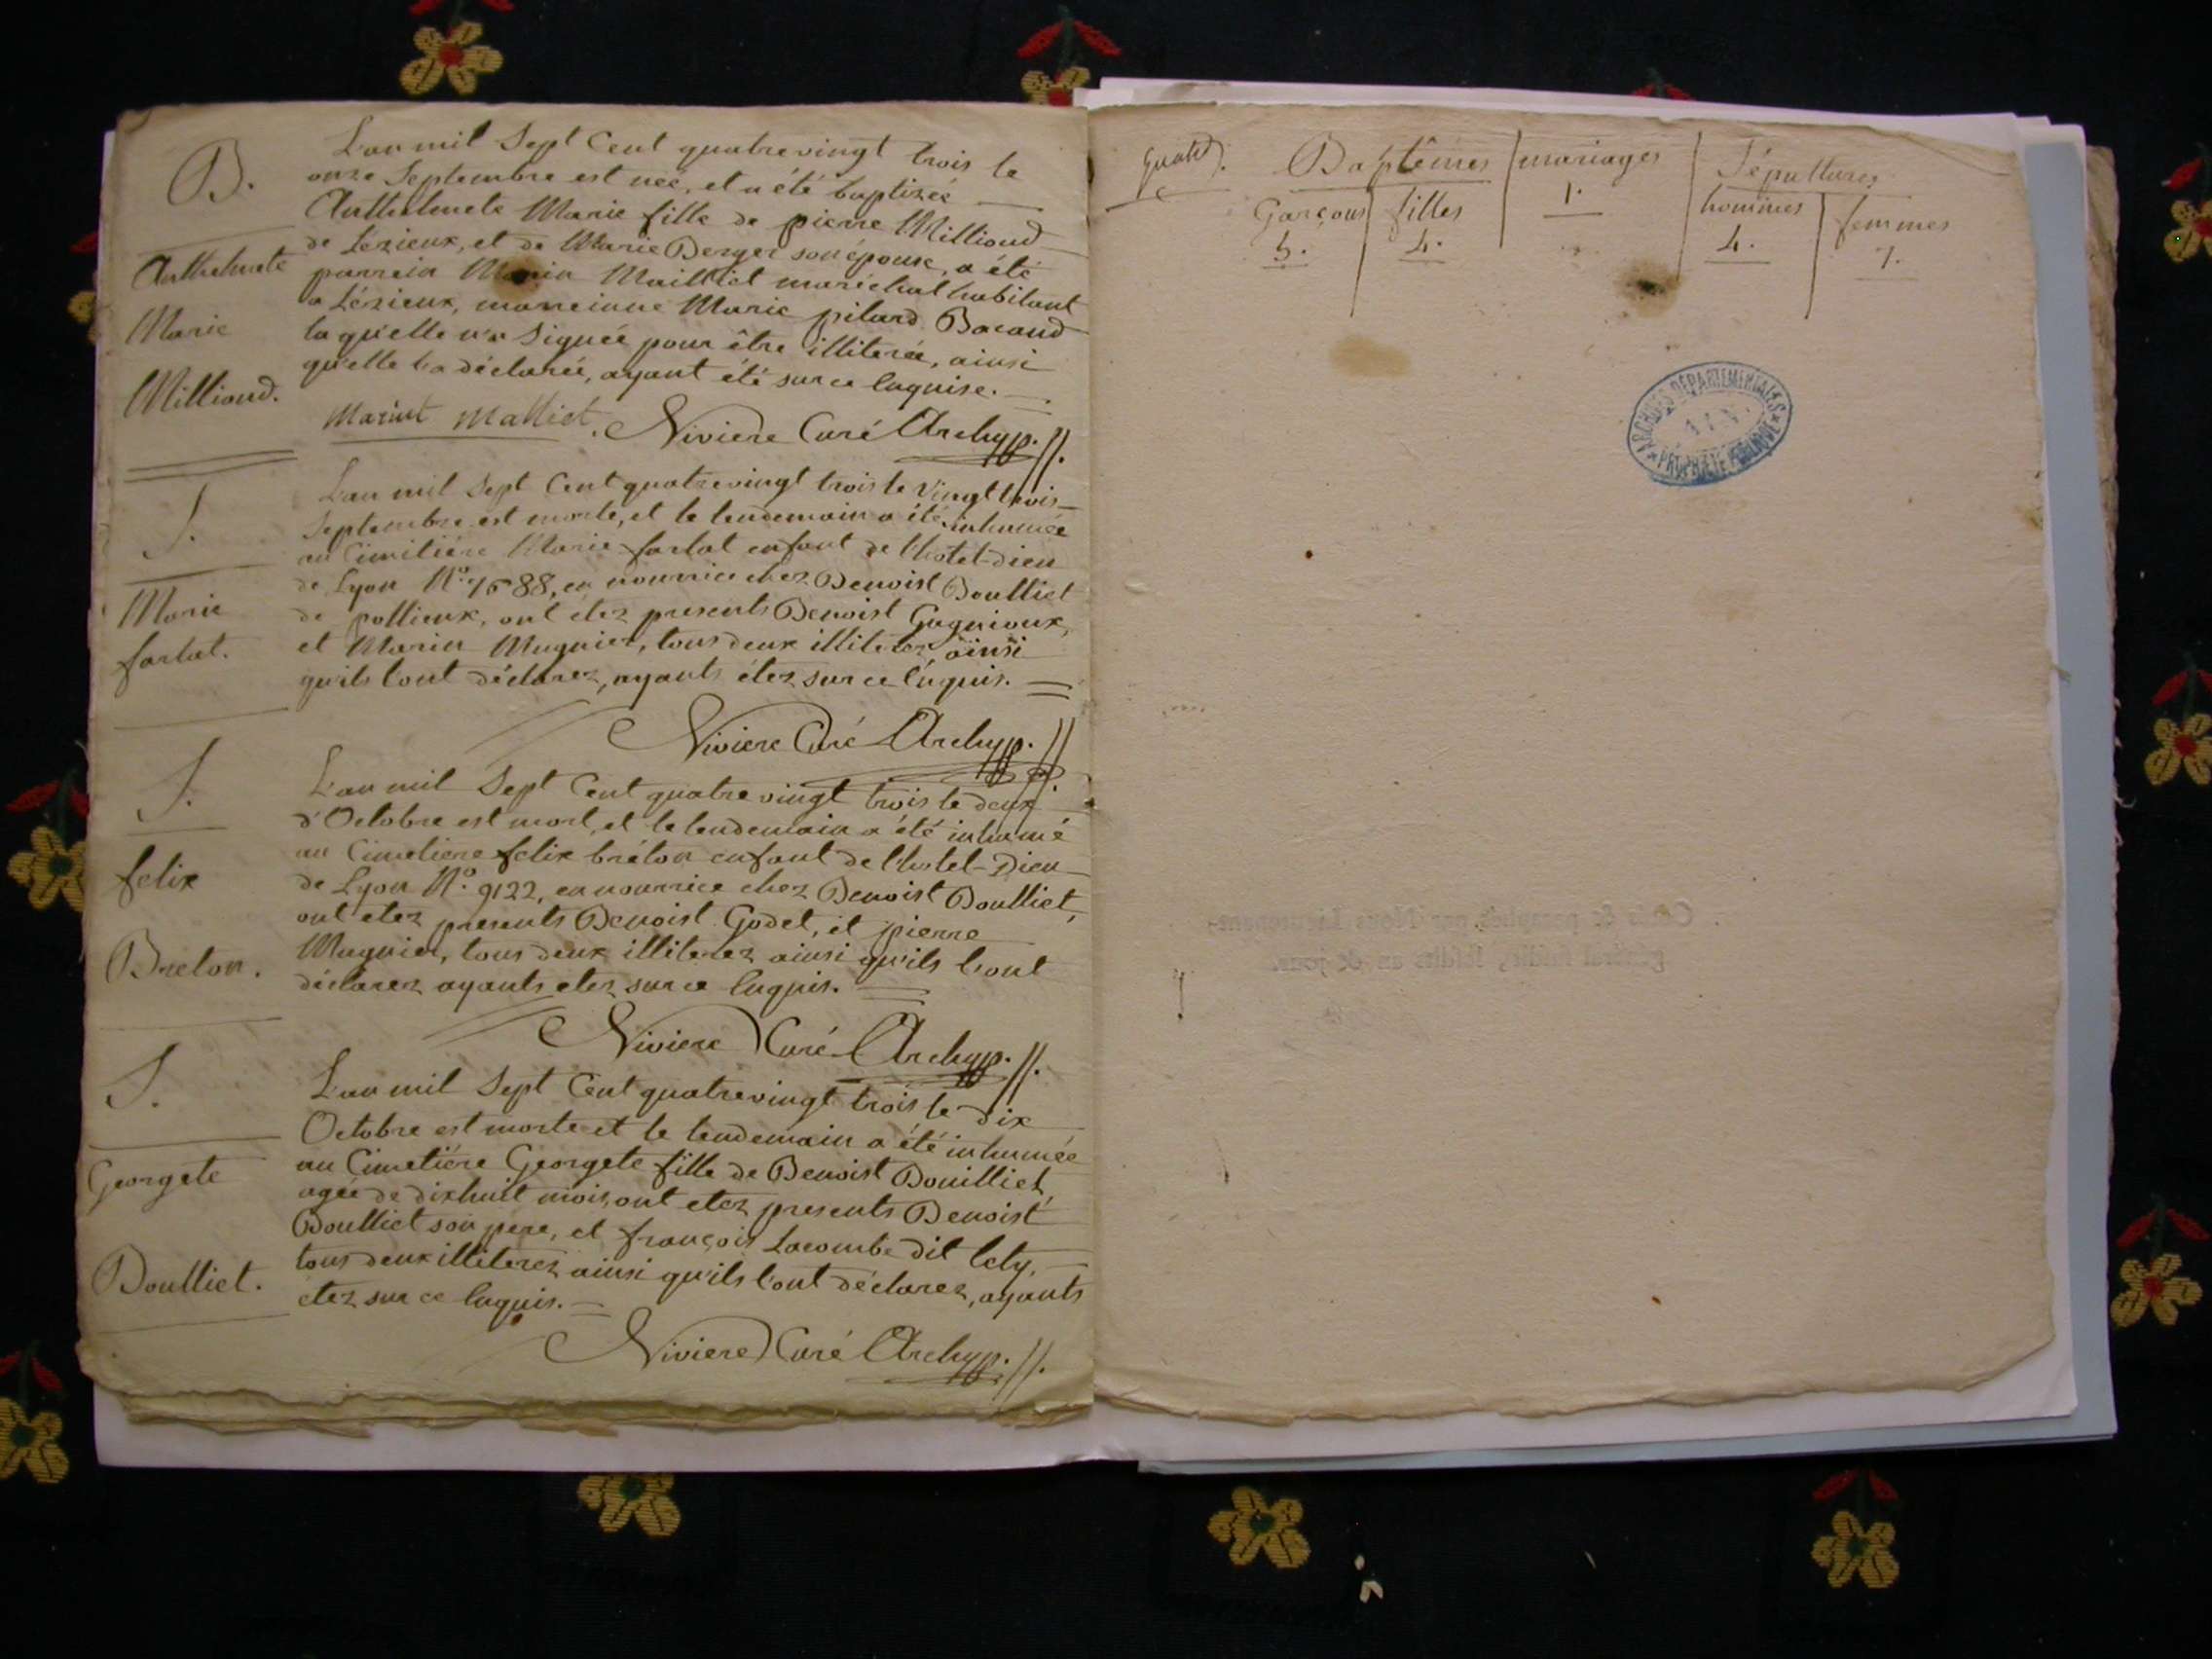 B.
Anthelmete
Marie
Milliand.
L'an mil Sept Cent quatrevingt trois le
onze Septembre est neé, et a été baptizée
Anthelmete Marie fille de pierre Milliand
de Lézieux, et de Marie Berger son épouse, a été
parrein Marin Mailliet maréchal habitant
a Lézieux, marreinne Marie pilard Bacand
laqu'elle n'a Signée pour être illiterée, ainsi
qu'elle la déclarée, ayant été sur ce Enquise.
Marint Malliet. Niviere Curé Archyp.
S.
Marie
farlat.
L'an mil Sept Cent quatrevingt trois le Vingt trois
Septembre est morte, et le lendemain a été inhumée
au Cimitiére Marie farlat enfant de l'hotel-dieu
de Lyon N.o 7688, en nourrice chez Benoist Doulliet
de pollieux, ont étez presents Benoist Gagnioux,
et Marin Mugnier, tous deux illiterez ainsi
qu'ils l'ont déclarez, ayants étez sur ce Enquis.
Niviere Curé Archyp.
S.
felix
Breton.
L'an mil Sept Cent quatre vingt trois le deux
d'Octobre est mort, et le lendemain a été inhumé
au Cimetiere felix bréton enfant de l'hotel-Dieu
de Lyon N.o 9122, en nourrice chez Benoist Doulliet,
ont etez presents Benoist Godet, et pierre
Mugnier, tous deux illiterez ainsi qu'ils l'ont
déclarez ayants etez sur ce Enquis.
Niviere Curé Archyp.
S.
Georgete
Doulliet.
L'an mil Sept Cent quatrevingt trois le dix
Octobre est morte et le lendemain a été inhumée
au Cimetiére Georgete fille de Benoist Douilliet
agée de dixhuit mois, ont etez presents Benoist
Doulliet son pere, et françois Lacombe dit lely,
tous deux illiterez ainsi qu'ils l'ont déclarez, ayants
etez sur ce Enquis.
Niviere Curé Archyp.
Baptêmes mariages Sépultures
Garçons filles 1. hommes femmes
5. 4. 4. 7.
ARCHIVES DÉPARTEMENTALES
AIN
PROPRIÉTÉ PUBLIQUE